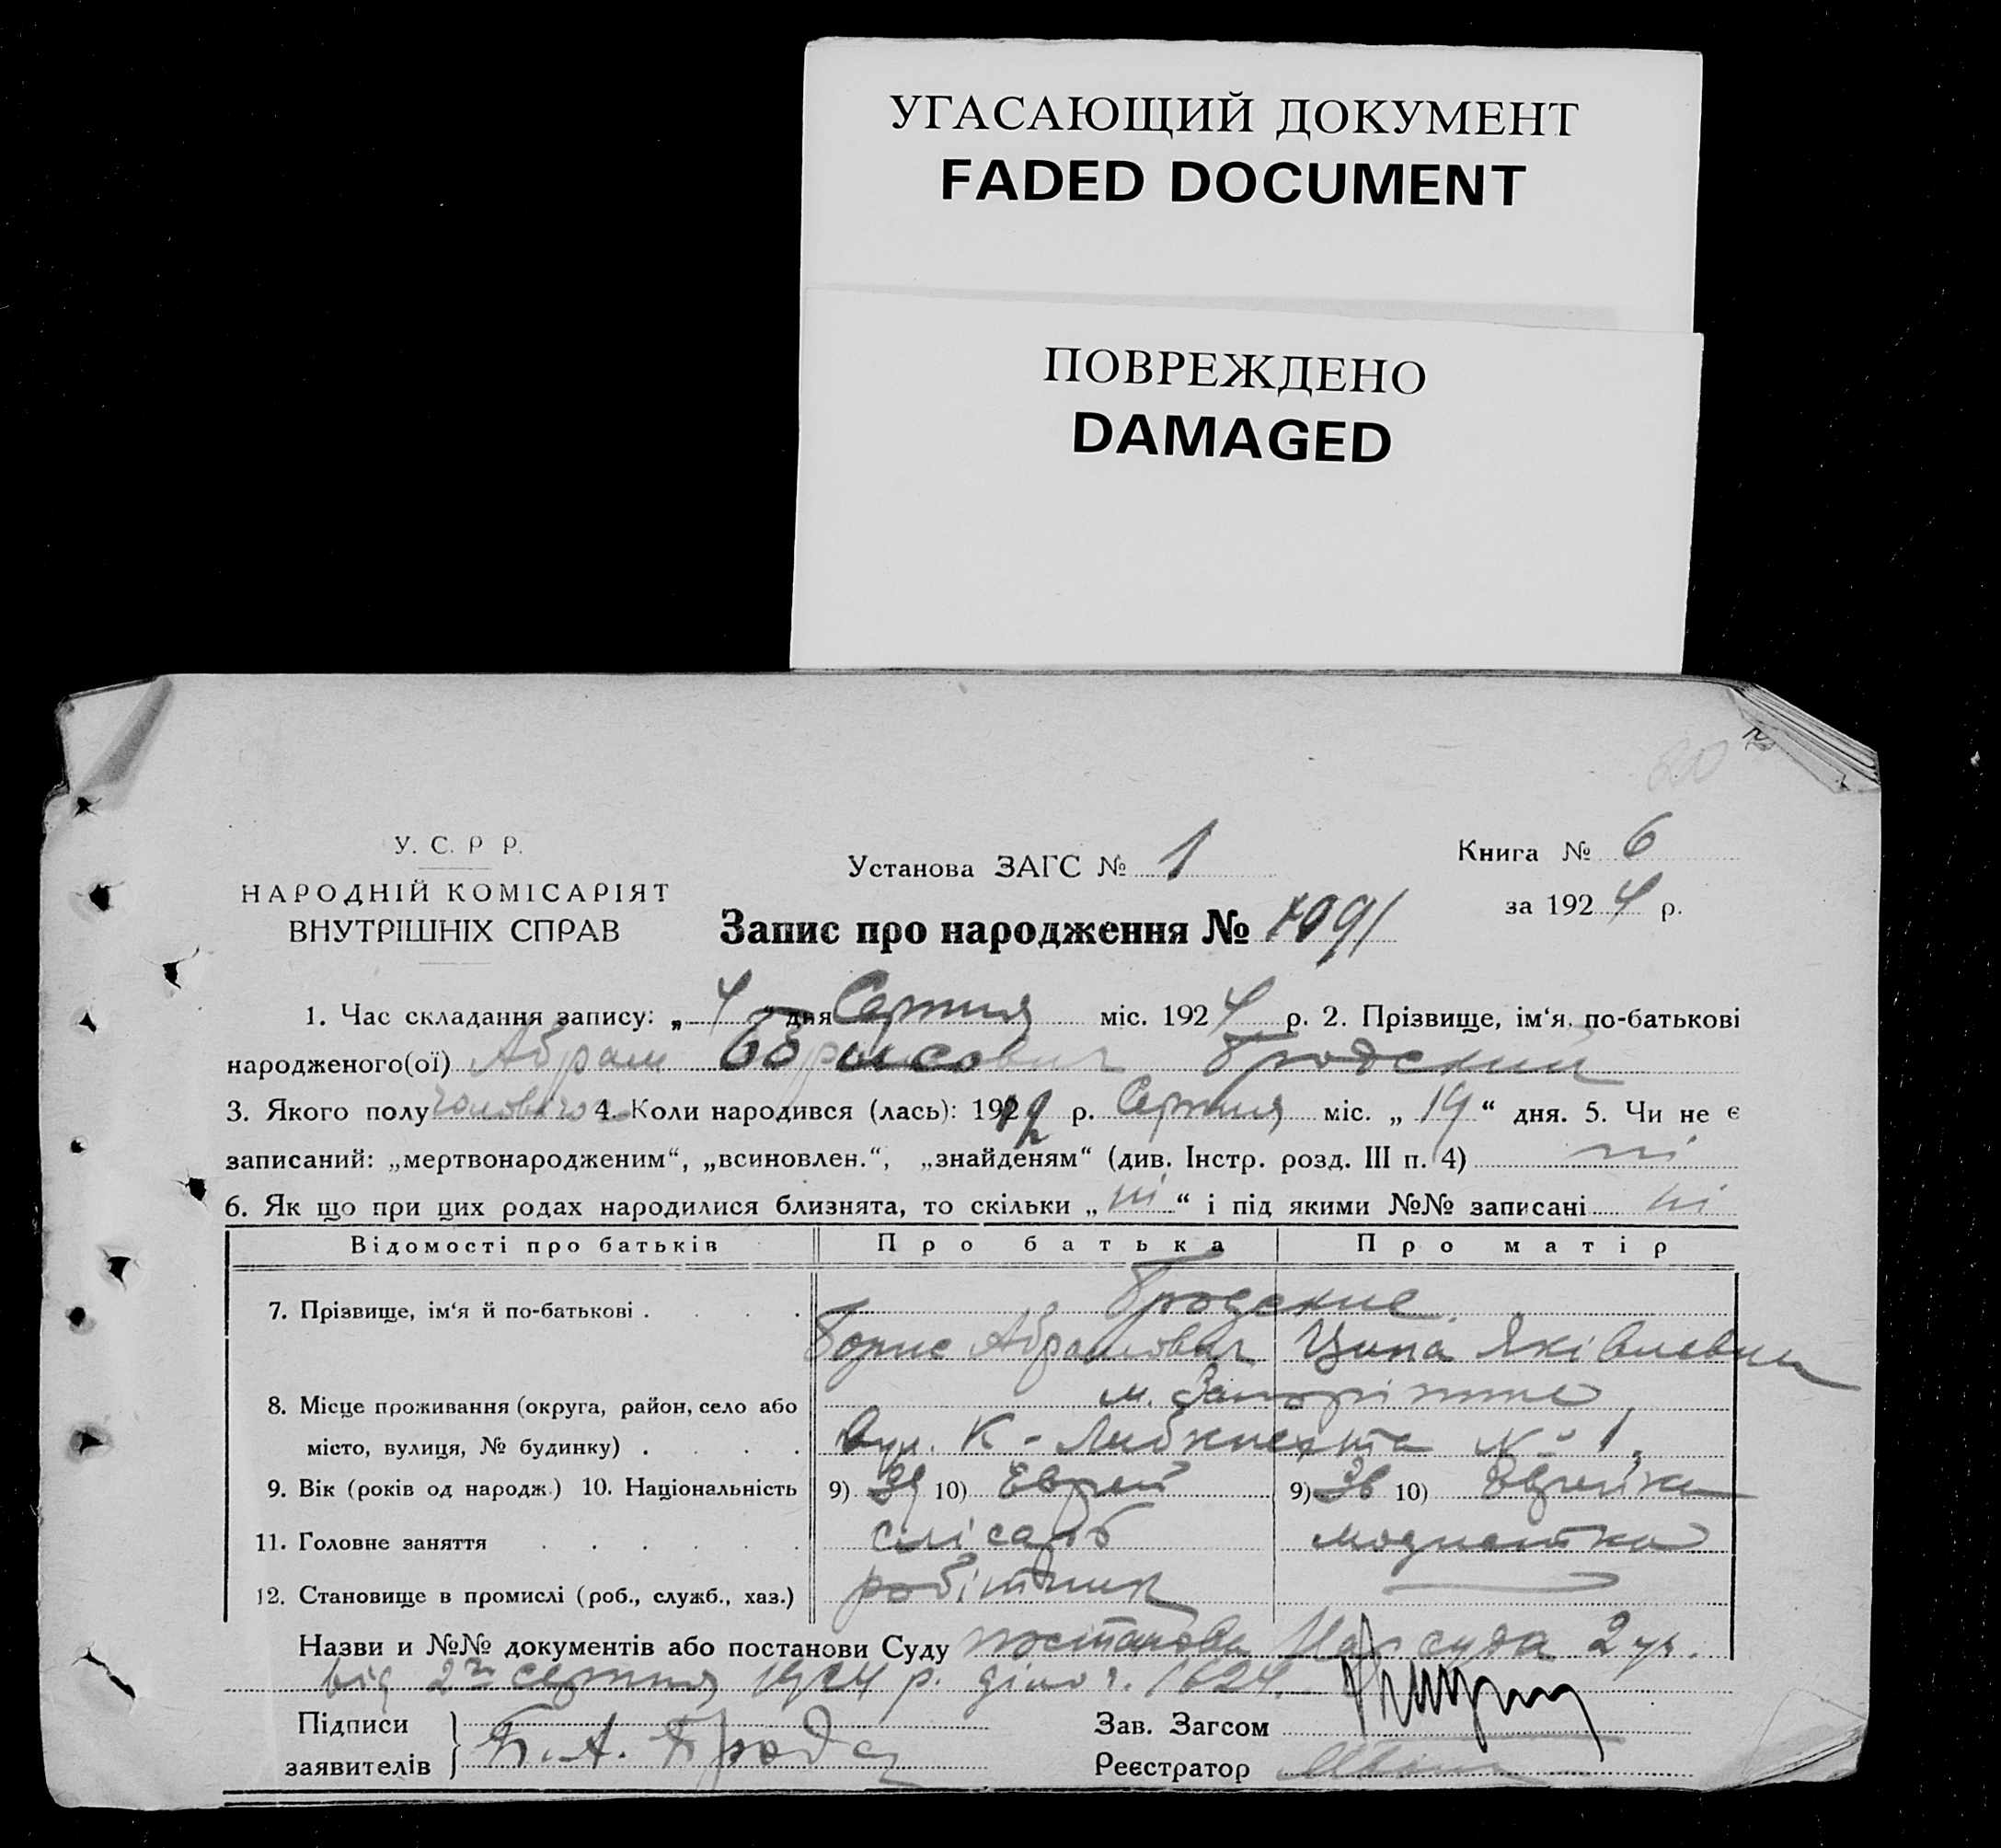 УГАСАЮЩИЙ ДОКУМЕНТ
FADED DOCUMENT
ПОВРЕЖДЕНО
DAMAGED
У. С. Р Р.
НАРОДНІЙ КОМІСАРІЯТ
ВНУТРІШНІХ СПРАВ
Установа ЗАГС № 1
Книга № 6
за 1924 р.
Запис про народження № 1091
1. Час складання запису: „ 4 " дня Серпня міс. 1924 р. 2. Прізвище, ім'я, по-батькові
народженого(ої) Абрам Борисович Бродский
3. Якого полу чоловічого 4. Коли народився (лась): 1912 р. Серпня міс. „ 19 " дня. 5. Чи не є
записаний: „мертвонародженим", „всиновлен.", „знайденям" (див. Інстр. розд. III п. 4) ні
6. Як що при цих родах народилися близнята, то скільки „ ні " і під якими №№ записані ні
Відомості про батьків Про батька Про матір
Бродские
7. Прізвище, ім'я й по-батькові .
Борис Абрамович Ципа Яківлевна
м. Запоріжжє
8. Місце проживання (округа, район, село або
місто, вулиця, № будинку) . Вул. К - Либкнехта № 1.
9. Вік (років од народж.) 10. Національність 9) 39 10) Еврей 9) 36 10) Еврейка
11. Головне заняття слісарь модистка
12. Становище в промислі (роб., служб., хаз.) робітник
Назви и №№ документів або постанови Суду постанова Нарсуда 2 уч.
від 2го серпня 1924 р. діло ч. 1624.
Підписи
заявителів Б. А. Брод
Зав. Загсом
Реєстратор